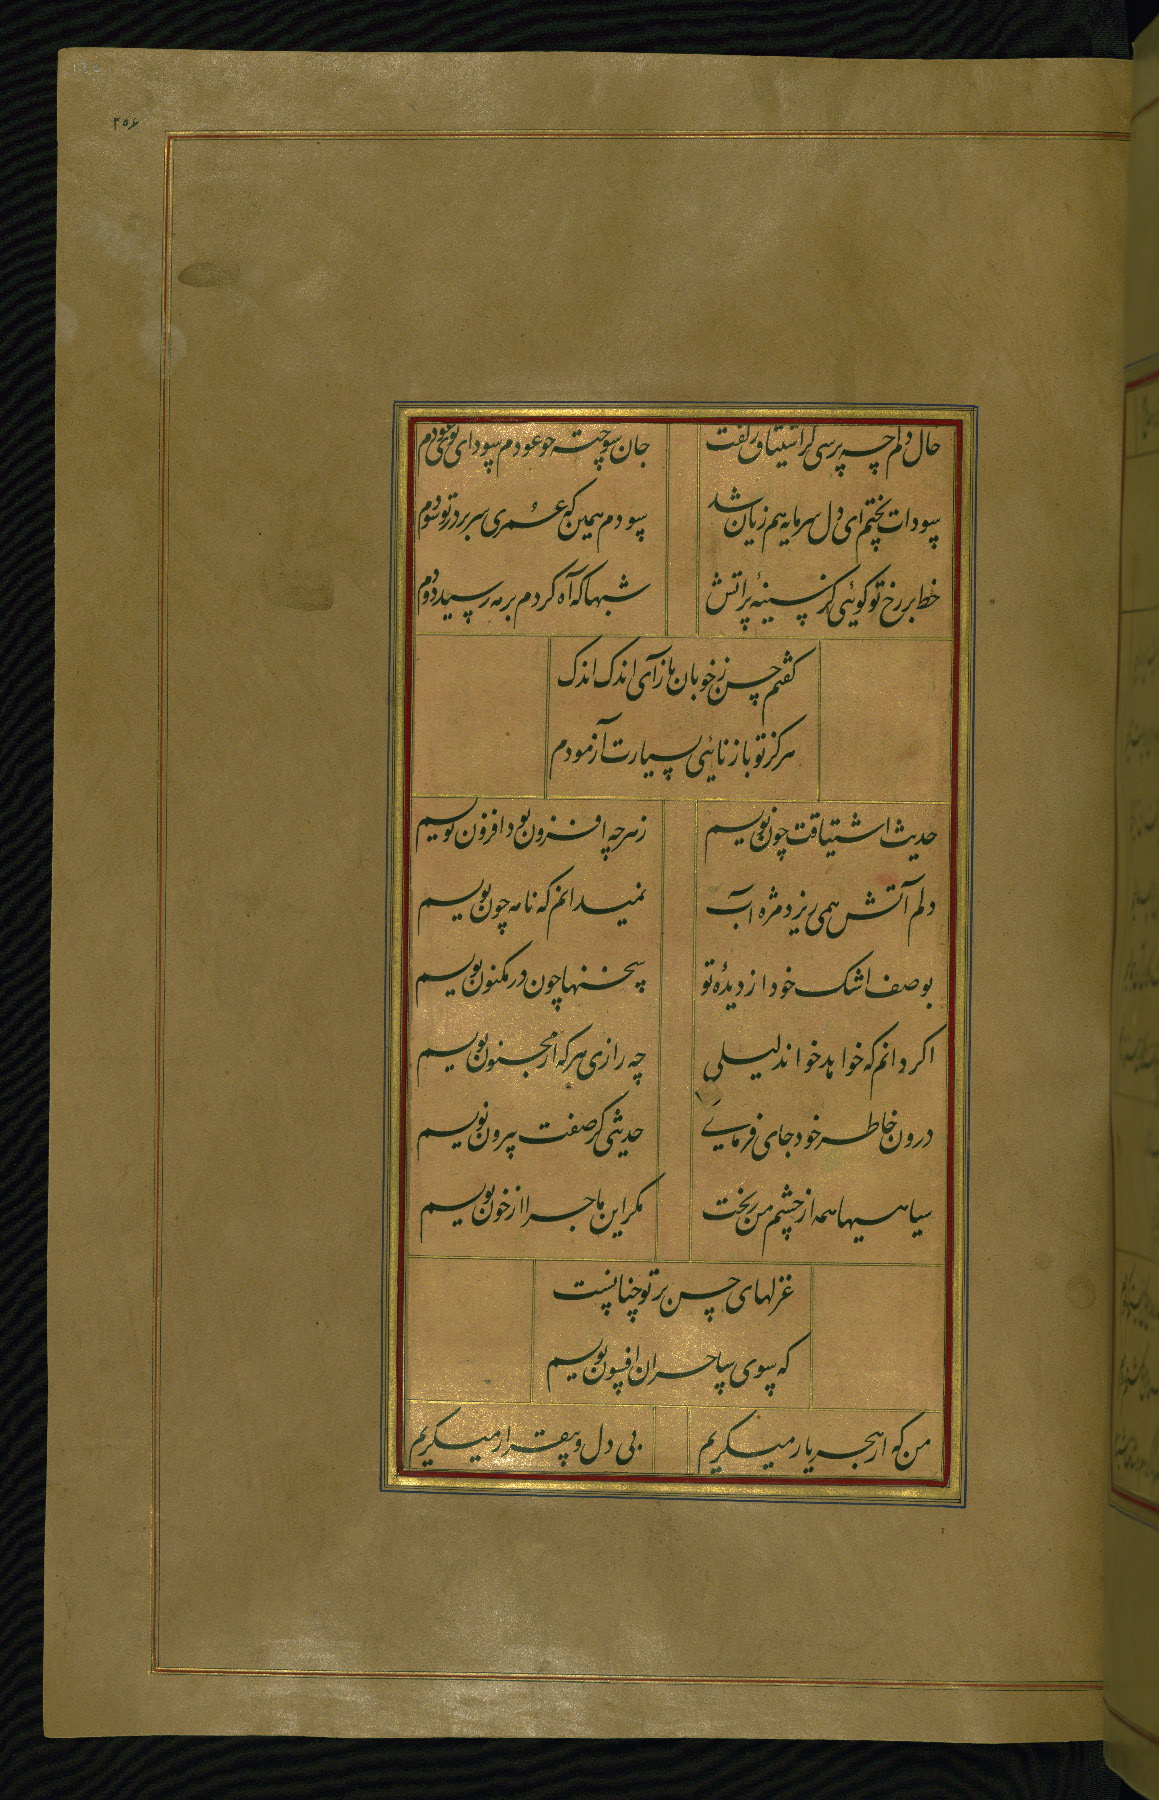 ۲۵۶
حال دلم چه پرسی کز اشتیاق زلفت جان سوخته چو عودم سودای تو چو دودم
سودات پختم ای دل سرمایه هم زیان شد سودم همین که عمری سر بر در تو سودم
خط بر رخ تو گوئی کز سینهٔ پر اتش شبها که آه کردم بر مه رسید دودم
گفتم حسن ز خوبان باز آی اندک اندک
هرگز تو باز نائی بسیارت آزمودم
حدیث اشتیاقت چون نویسم زهرچه افزون بود افزون نویسم
دلم آتش همی ریزد مژه آب نمیدانم که نامه چون نویسم
بوصف اشک خود از دیدهٔ تو سخنها چون در مکنون نویسم
اگر دانم که خواهد خواند لیلی چه رازی هر که از مجنون نویسم
درون خاطر خود جای فرمایی حدیثی کز صفت بیرون نویسم
سیاهیها همه از چشم من ریخت مگر این ماجرا از خون نویسم
غزلهای حسن بر تو چنانست
که سوی ساحران افسون نویسم
من که از هجر یار میگریم بی دل و بیقرار میگریم